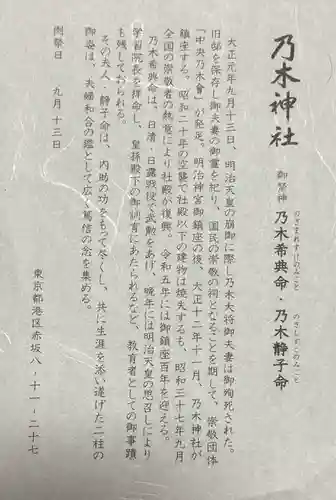 乃木神社
御祭神 乃木希典命・乃木静子命
のぎまれすけのみこと のぎしずこのみこと
大正元年九月十三日、明治天皇の崩御に際し乃木大将御夫妻は御殉死された。
旧邸を保存し御夫妻の御霊を祀り、国民の崇敬の祠となることを期して、崇敬団体
「中央乃木會」が発足。明治神宮御鎮座の後、大正十二年十一月、乃木神社が
鎮座する。昭和二十年の空襲で社殿以下の建物は焼失するも、昭和三十七年九月
全国の崇敬者の熱意により社殿が復興。令和五年には御鎮座百年を迎える。
乃木希典命は、日清・日露戦役で武勲をあげ、晩年には明治天皇の思召しにより
学習院長を拝命し、皇孫殿下の御訓育にあたられるなど、教育者としての御事蹟
も残しておられる。
その夫人・静子命は、内助の功をもって尽くし、共に生涯を添い遂げた二柱の
御姿は、夫婦和合の鑑として広く篤信の念を集める。
例祭日 九月十三日
東京都港区赤坂八-十一-二十七